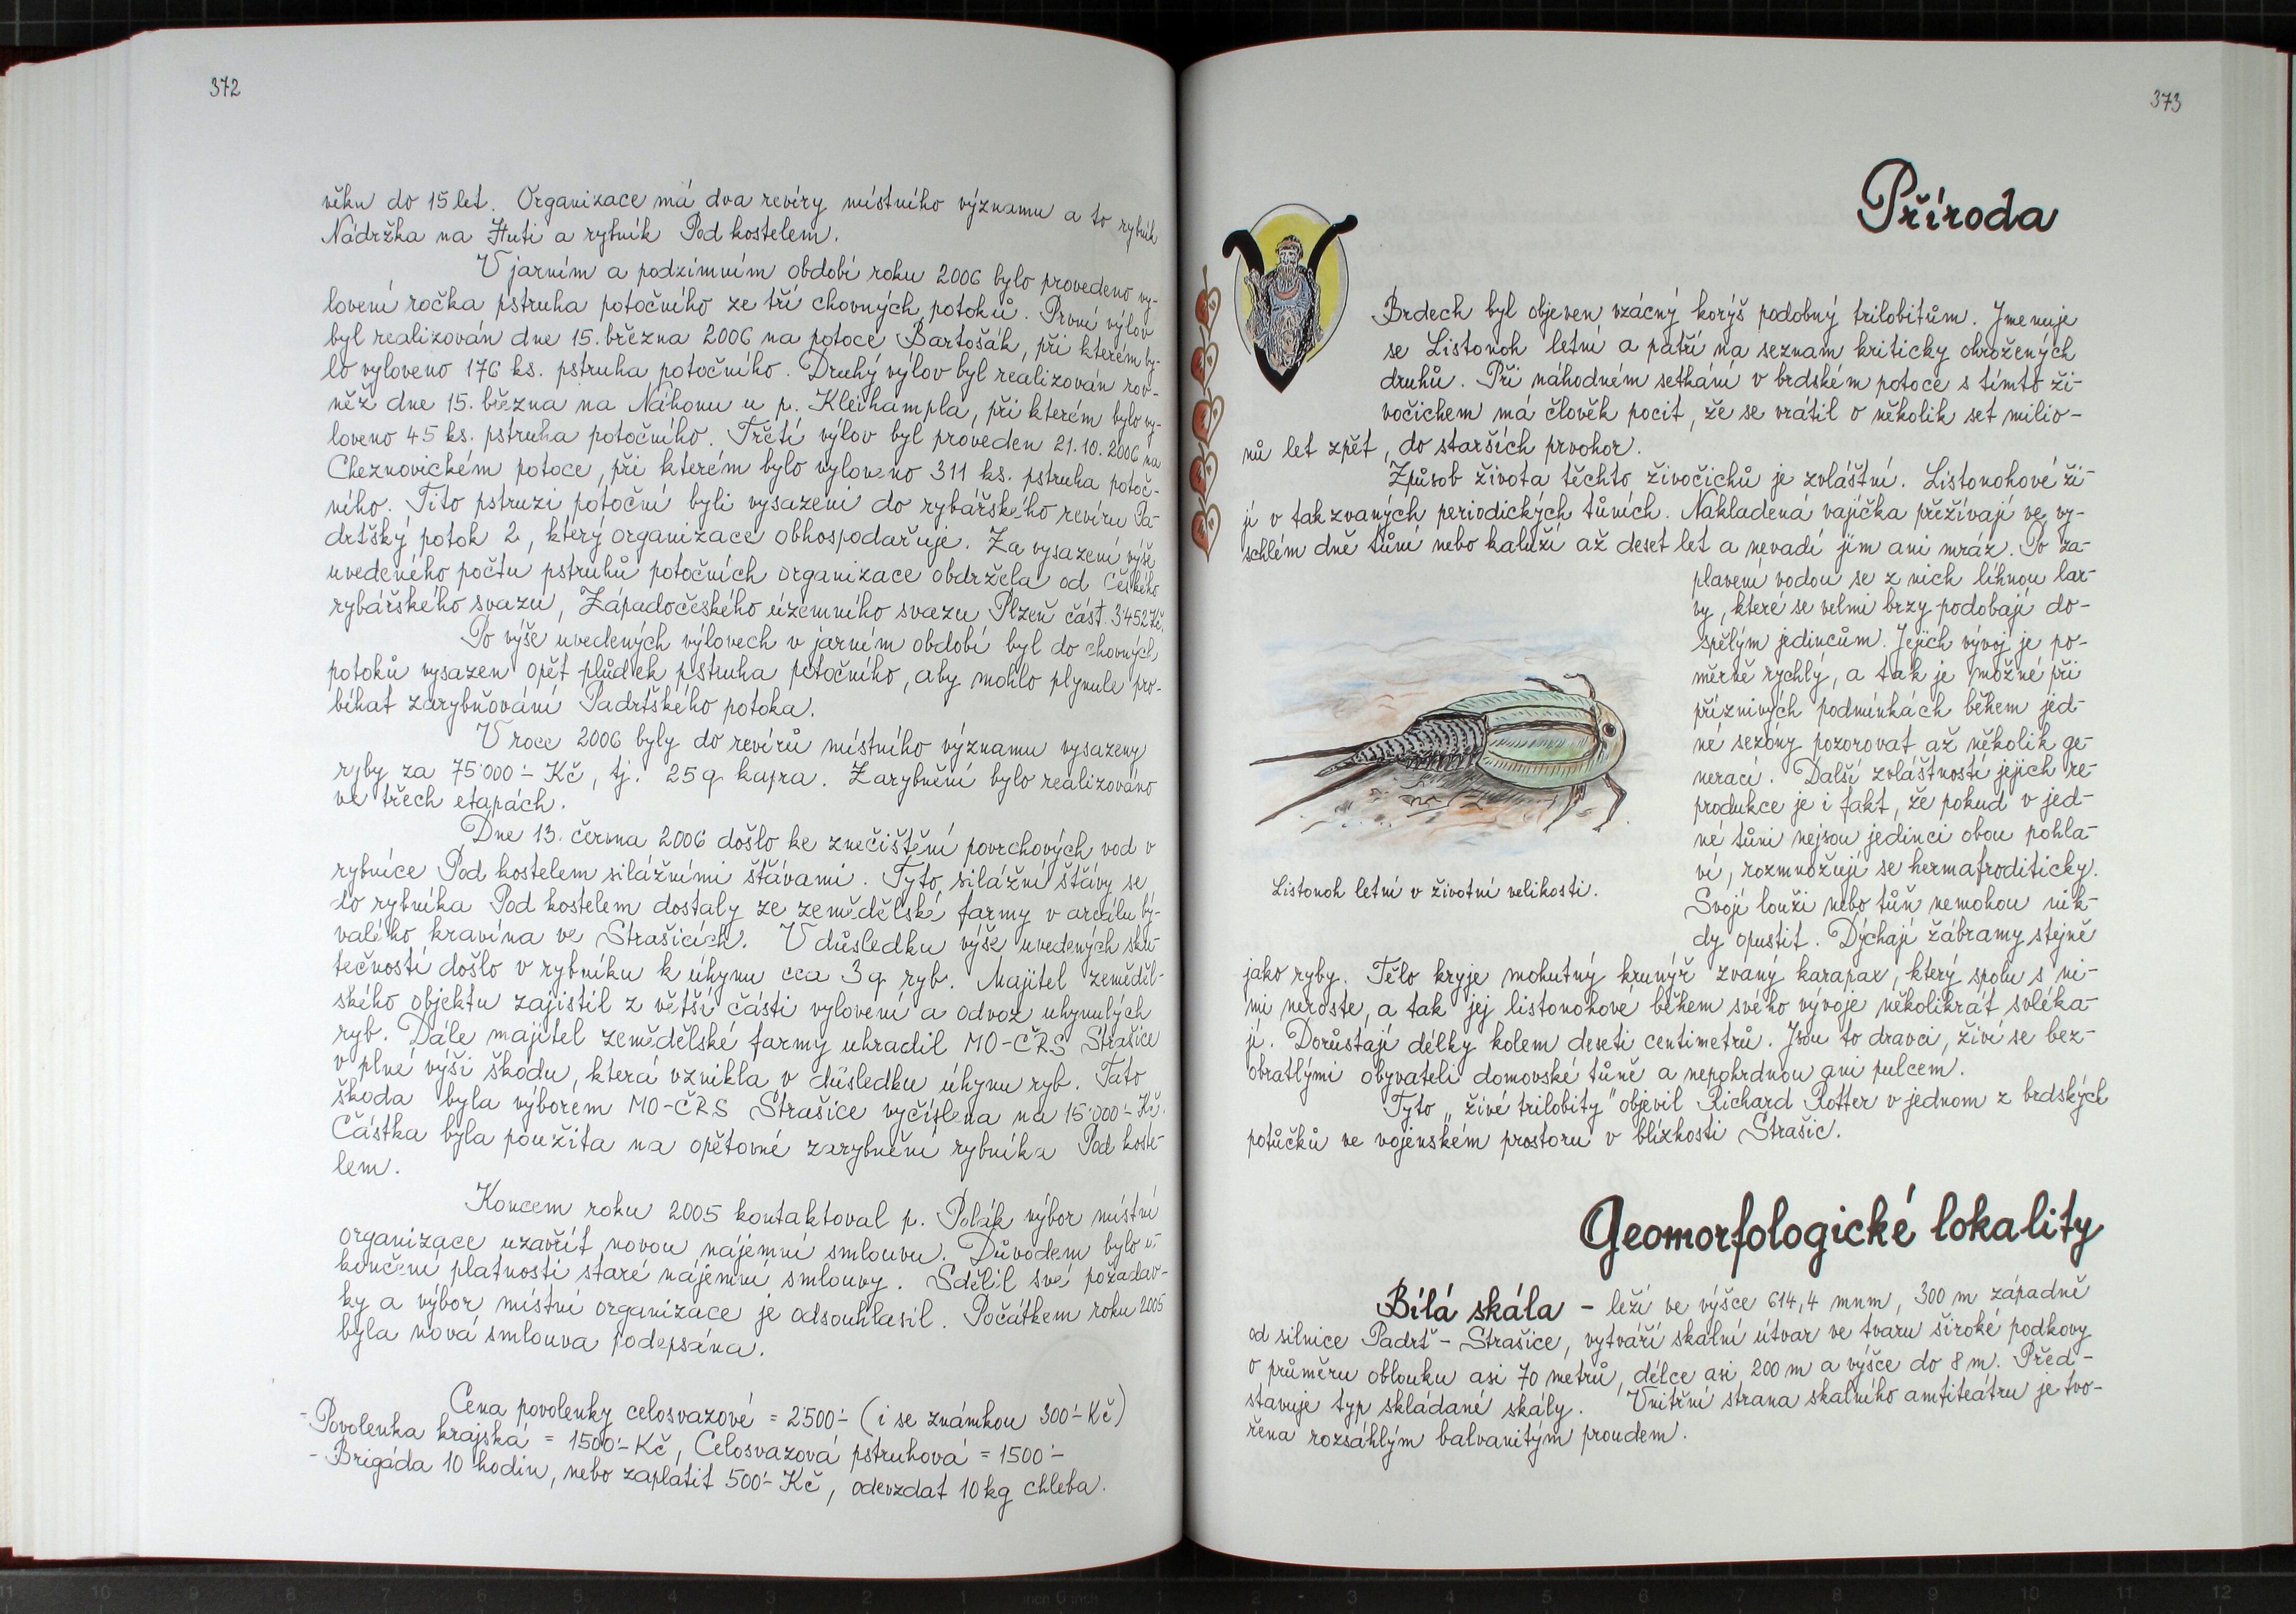 372
věku do 15 let. Organizace má dva revíry místního významu a to rybník
Nádržka na Huti a rybník Pod kostelem.
V jarním a podzimním období roku 2006 bylo provedeno vy-
lovení ročka pstruha potočního ze tří chovných potoků. První výlov
byl realizován dne 15. března 2006 na potoce Bartošák, při kterém by-
lo vyloveno 176 ks. pstruha potočního. Druhý výlov byl realizován rov-
něž dne 15. března na Náhonu u p. Kleihampla, při kterém bylo vy-
loveno 45 ks. pstruha potočního. Třetí výlov byl proveden 21.10. 2006 na
Cheznovickém potoce, při kterém bylo vyloveno 311 ks. pstruha potoč-
ního. Tito pstruzi potoční byli vysazeni do rybářského revíru Pa-
drtšký potok 2, který organizace obhospodařuje. Za vysazení výše
uvedeného počtu pstruhů potočních organizace obdržela od Českého
rybářského svazu, Západočeského územního svazu Plzeň část. 3'452 Kč.
Po výše uvedených výlovech v jarním období byl do chovných
potoků vysazen opět plůdek pstruha potočního, aby mohlo plynule pro-
bíhat zarybňování Padrtšského potoka.
V roce 2006 byly do revírů místního významu vysazeny
ryby za 75'000'- Kč, tj. 25 q kapra. Zarybnění bylo realizováno
ve třech etapách.
Dne 13. června 2006 došlo ke znečištění povrchových vod v
rybníce Pod kostelem silážními šťávami. Tyto silážní šťávy se
do rybníka Pod kostelem dostaly ze zemědělské farmy v areálu bý-
valého kravína ve Strašicích. V důsledku výše uvedených sku-
tečností došlo v rybníku k úhynu cca 3q ryb. Majitel zeměděl-
ského objektu zajistil z větší části vylovení a odvoz uhynulých
ryb. Dále majitel zemědělské farmy uhradil MO-ČRS Strašice
v plné výši škodu, která vznikla v důsledku úhynu ryb. Tato
škoda byla výborem MO-ČRS Strašice vyčíslena na 15'000'- Kč.
Částka byla použita na opětovné zarybnění rybníka Pod koste-
lem.
Koncem roku 2005 kontaktoval p. Polák výbor místní
organizace uzavřít novou nájemní smlouvu. Důvodem bylo u-
končení platnosti staré nájemní smlouvy. Sdělil své požadav-
ky a výbor místní organizace je odsouhlasil. Počátkem roku 2005
byla nová smlouva podepsána.
Cena povolenky celosvazové = 2'500'- (i se známkou 300'- Kč)
- Povolenka krajská = 1500'- Kč, Celosvazová pstruhová = 1500'-
- Brigáda 10 hodin, nebo zaplatit 500'- Kč, odevzdat 10 kg chleba.
373
Příroda
V
Brdech byl objeven vzácný korýš podobný trilobitům. Jmenuje
se Listonoh letní a patří na seznam kriticky ohrožených
druhů. Při náhodném setkání v brdském potoce s tímto ži-
vočichem má člověk pocit, že se vrátil o několik set milio-
nů let zpět, do starších prvohor.
Způsob života těchto živočichů je zvláštní. Listonohové ži-
jí v takzvaných periodických tůních. Nakladená vajíčka přežívají ve vy-
schlém dně tůní nebo kaluží až deset let a nevadí jim ani mráz. Po za-
plavení vodou se z nich líhnou lar-
vy, které se velmi brzy podobají do-
spělým jedincům. Jejich vývoj je po-
měrně rychlý, a tak je možné při
příznivých podmínkách během jed-
né sezóny pozorovat až několik ge-
nerací. Další zvláštností jejich re-
produkce je i fakt, že pokud v jed-
né tůni nejsou jedinci obou pohla-
ví, rozmnožují se hermafroditicky.
Svojí louži nebo tůň nemohou nik-
dy opustit. Dýchají žábramy stejně
Listonoh letní v životní velikosti.
jako ryby. Tělo kryje mohutný krunýř zvaný karapax, který spolu s ni-
mi neroste, a tak jej listonohové během svého vývoje několikrát svléka-
jí. Dorůstají délky kolem deseti centimetrů. Jsou to dravci, živí se bez-
obratlými obyvateli domovské tůně a nepohrdnou ani pulcem.
Tyto „živé trilobity" objevil Richard Rotter v jednom z brdských
potůčků ve vojenském prostoru v blízkosti Strašic.
Geomorfologické lokality
Bílá skála - leží ve výšce 614,4 mnm, 300 m západně
od silnice Padrť - Strašice, vytváří skalní útvar ve tvaru široké podkovy
o průměru oblouku asi 70 metrů, délce asi 200 m a výšce do 8 m. Před-
stavuje typ skládané skály. Vnitřní strana skalního amfiteátru je tvo-
řena rozsáhlým balvanitým proudem.
11 10 9 8 7 6 5 4 3 2 1 inch 0 inch 1 2 3 4 5 6 7 8 9 10 11 12